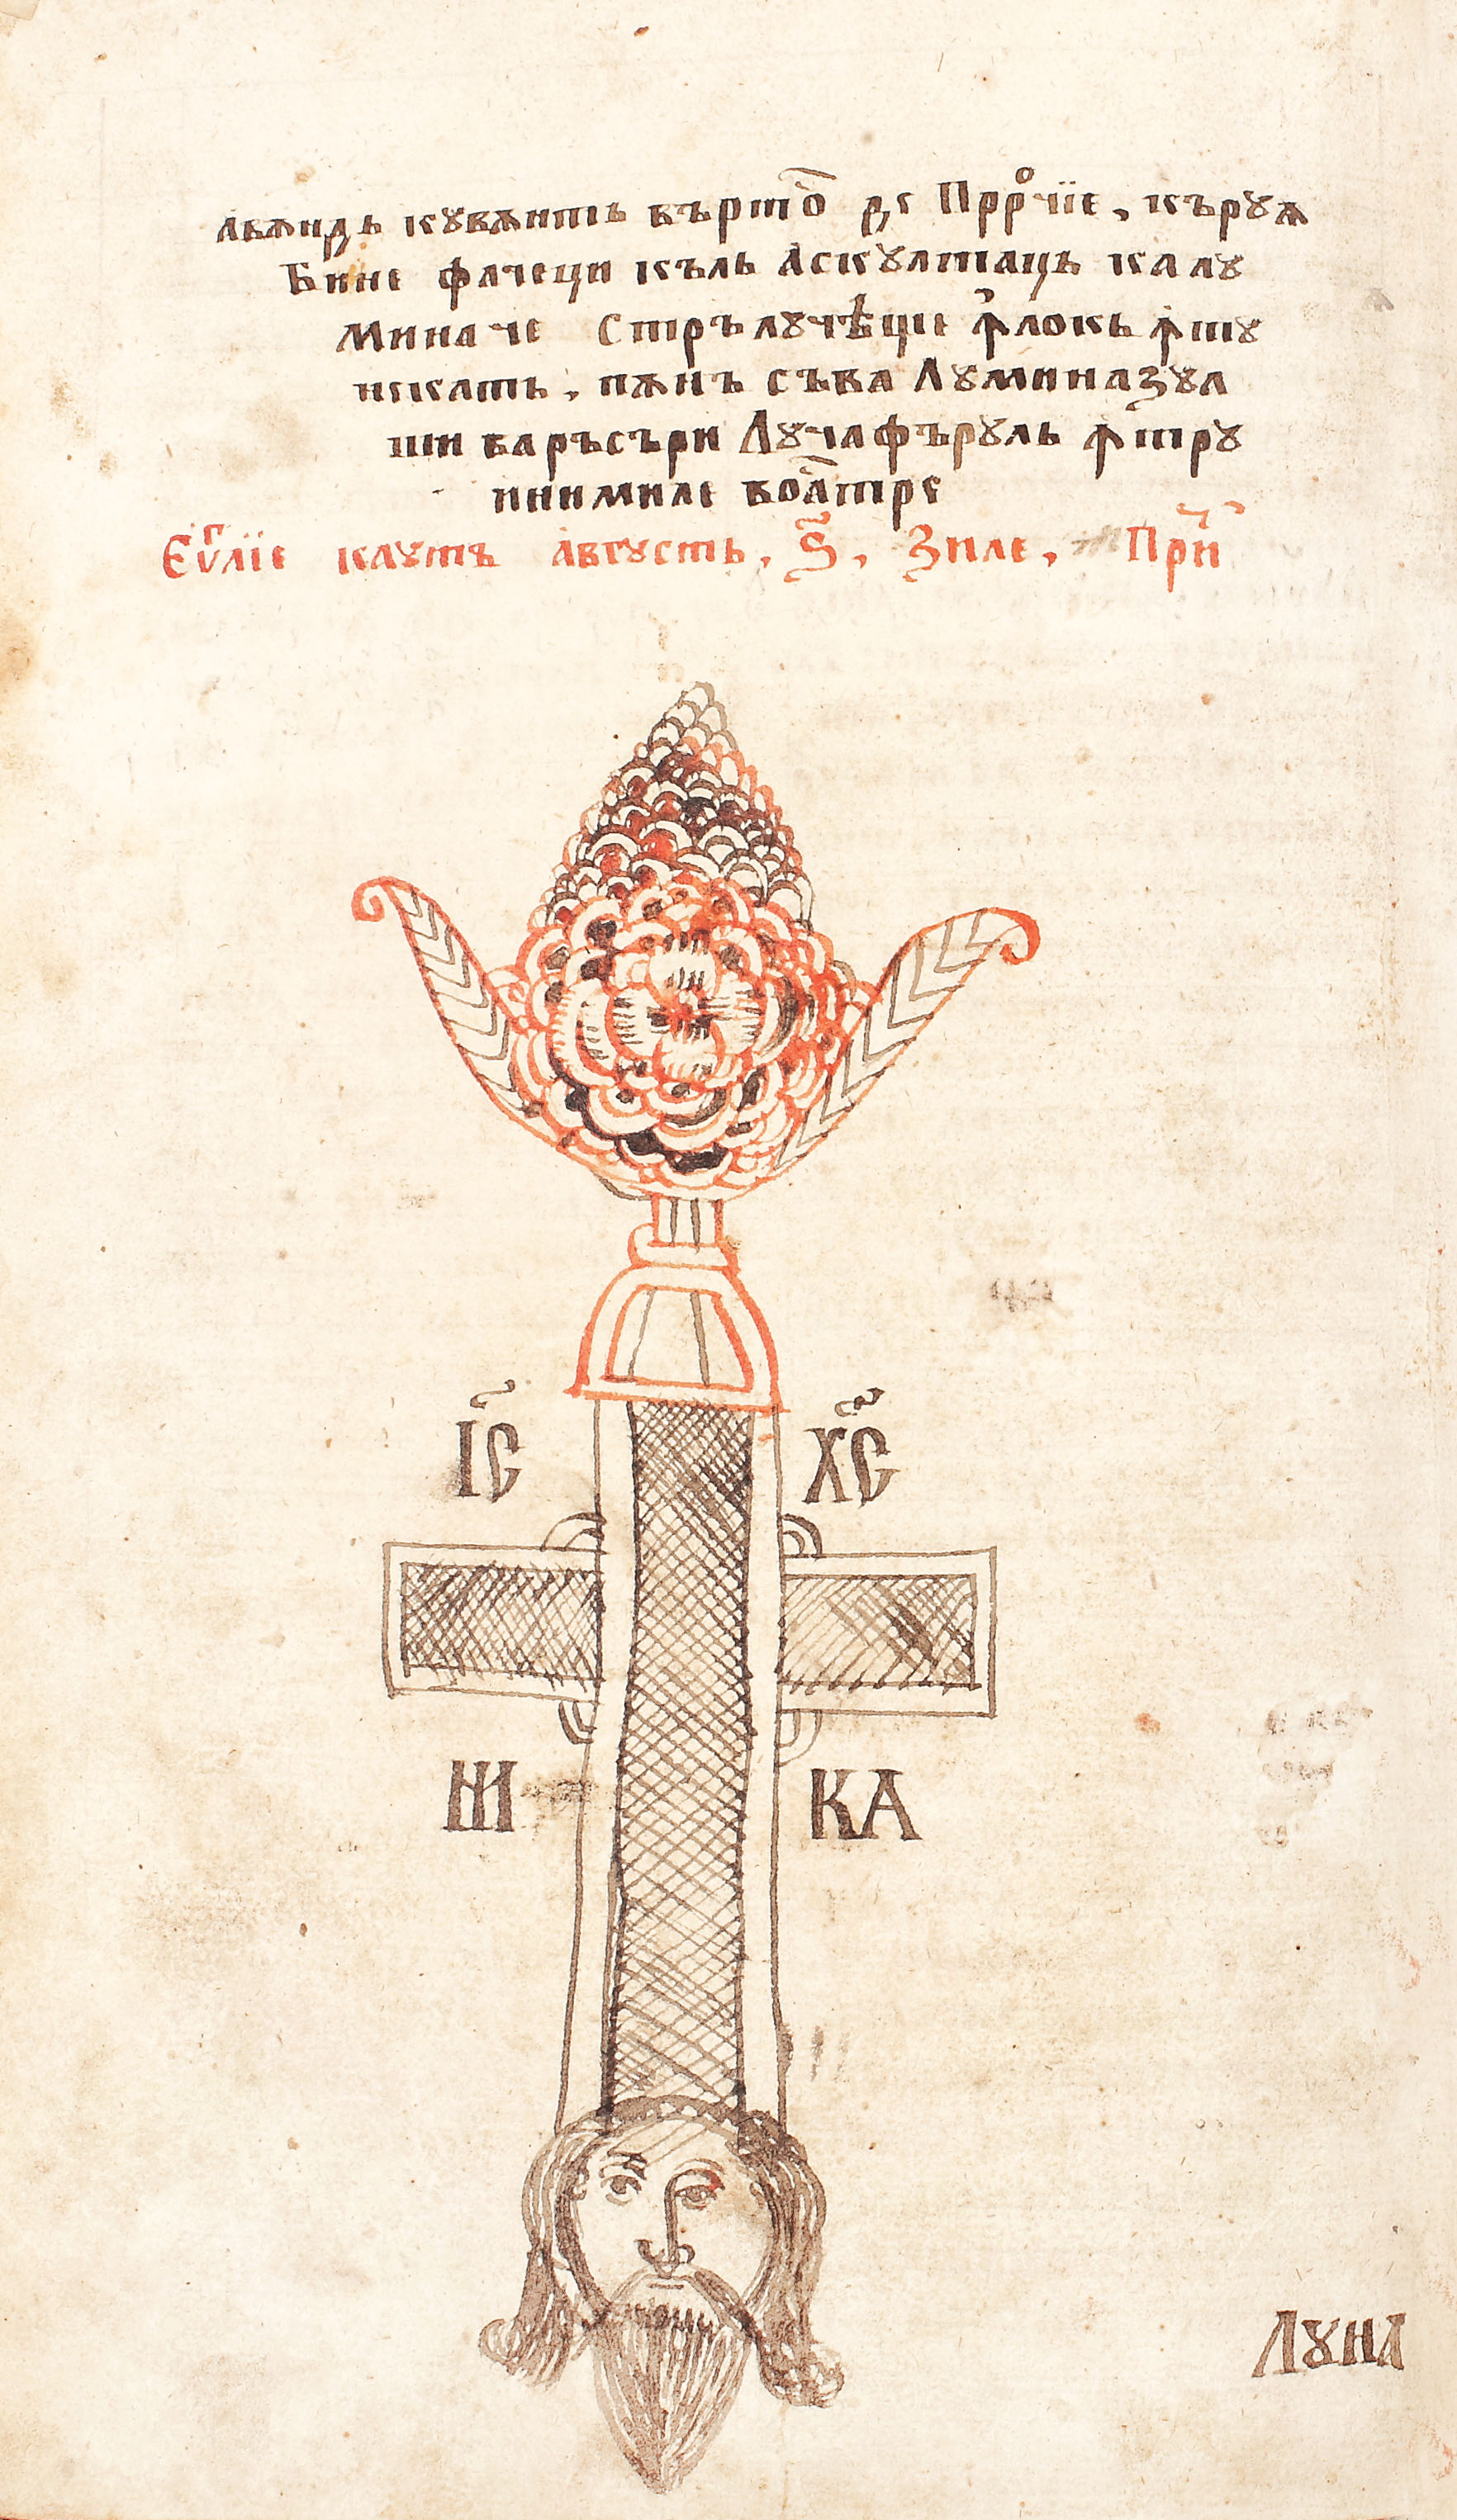 авѫндь кувѫнть върто҃ де Прⷪрчїе, къруѫ
Бине фачеци къль аскултацъ ка лꙋ
Мина че стрълучѣще ꙟлокь ꙟтꙋ
некать, пѫнъ съва Лꙋминазꙋа
ши варъсъри Лꙋчафърꙋль ꙟтрꙋ
инимиле воа҃тре
Єѵⷢ҇лїе каутъ августь, Ѕ҃, Зиле, При҃
І҃С Х҃С
НИ КА
Лꙋна